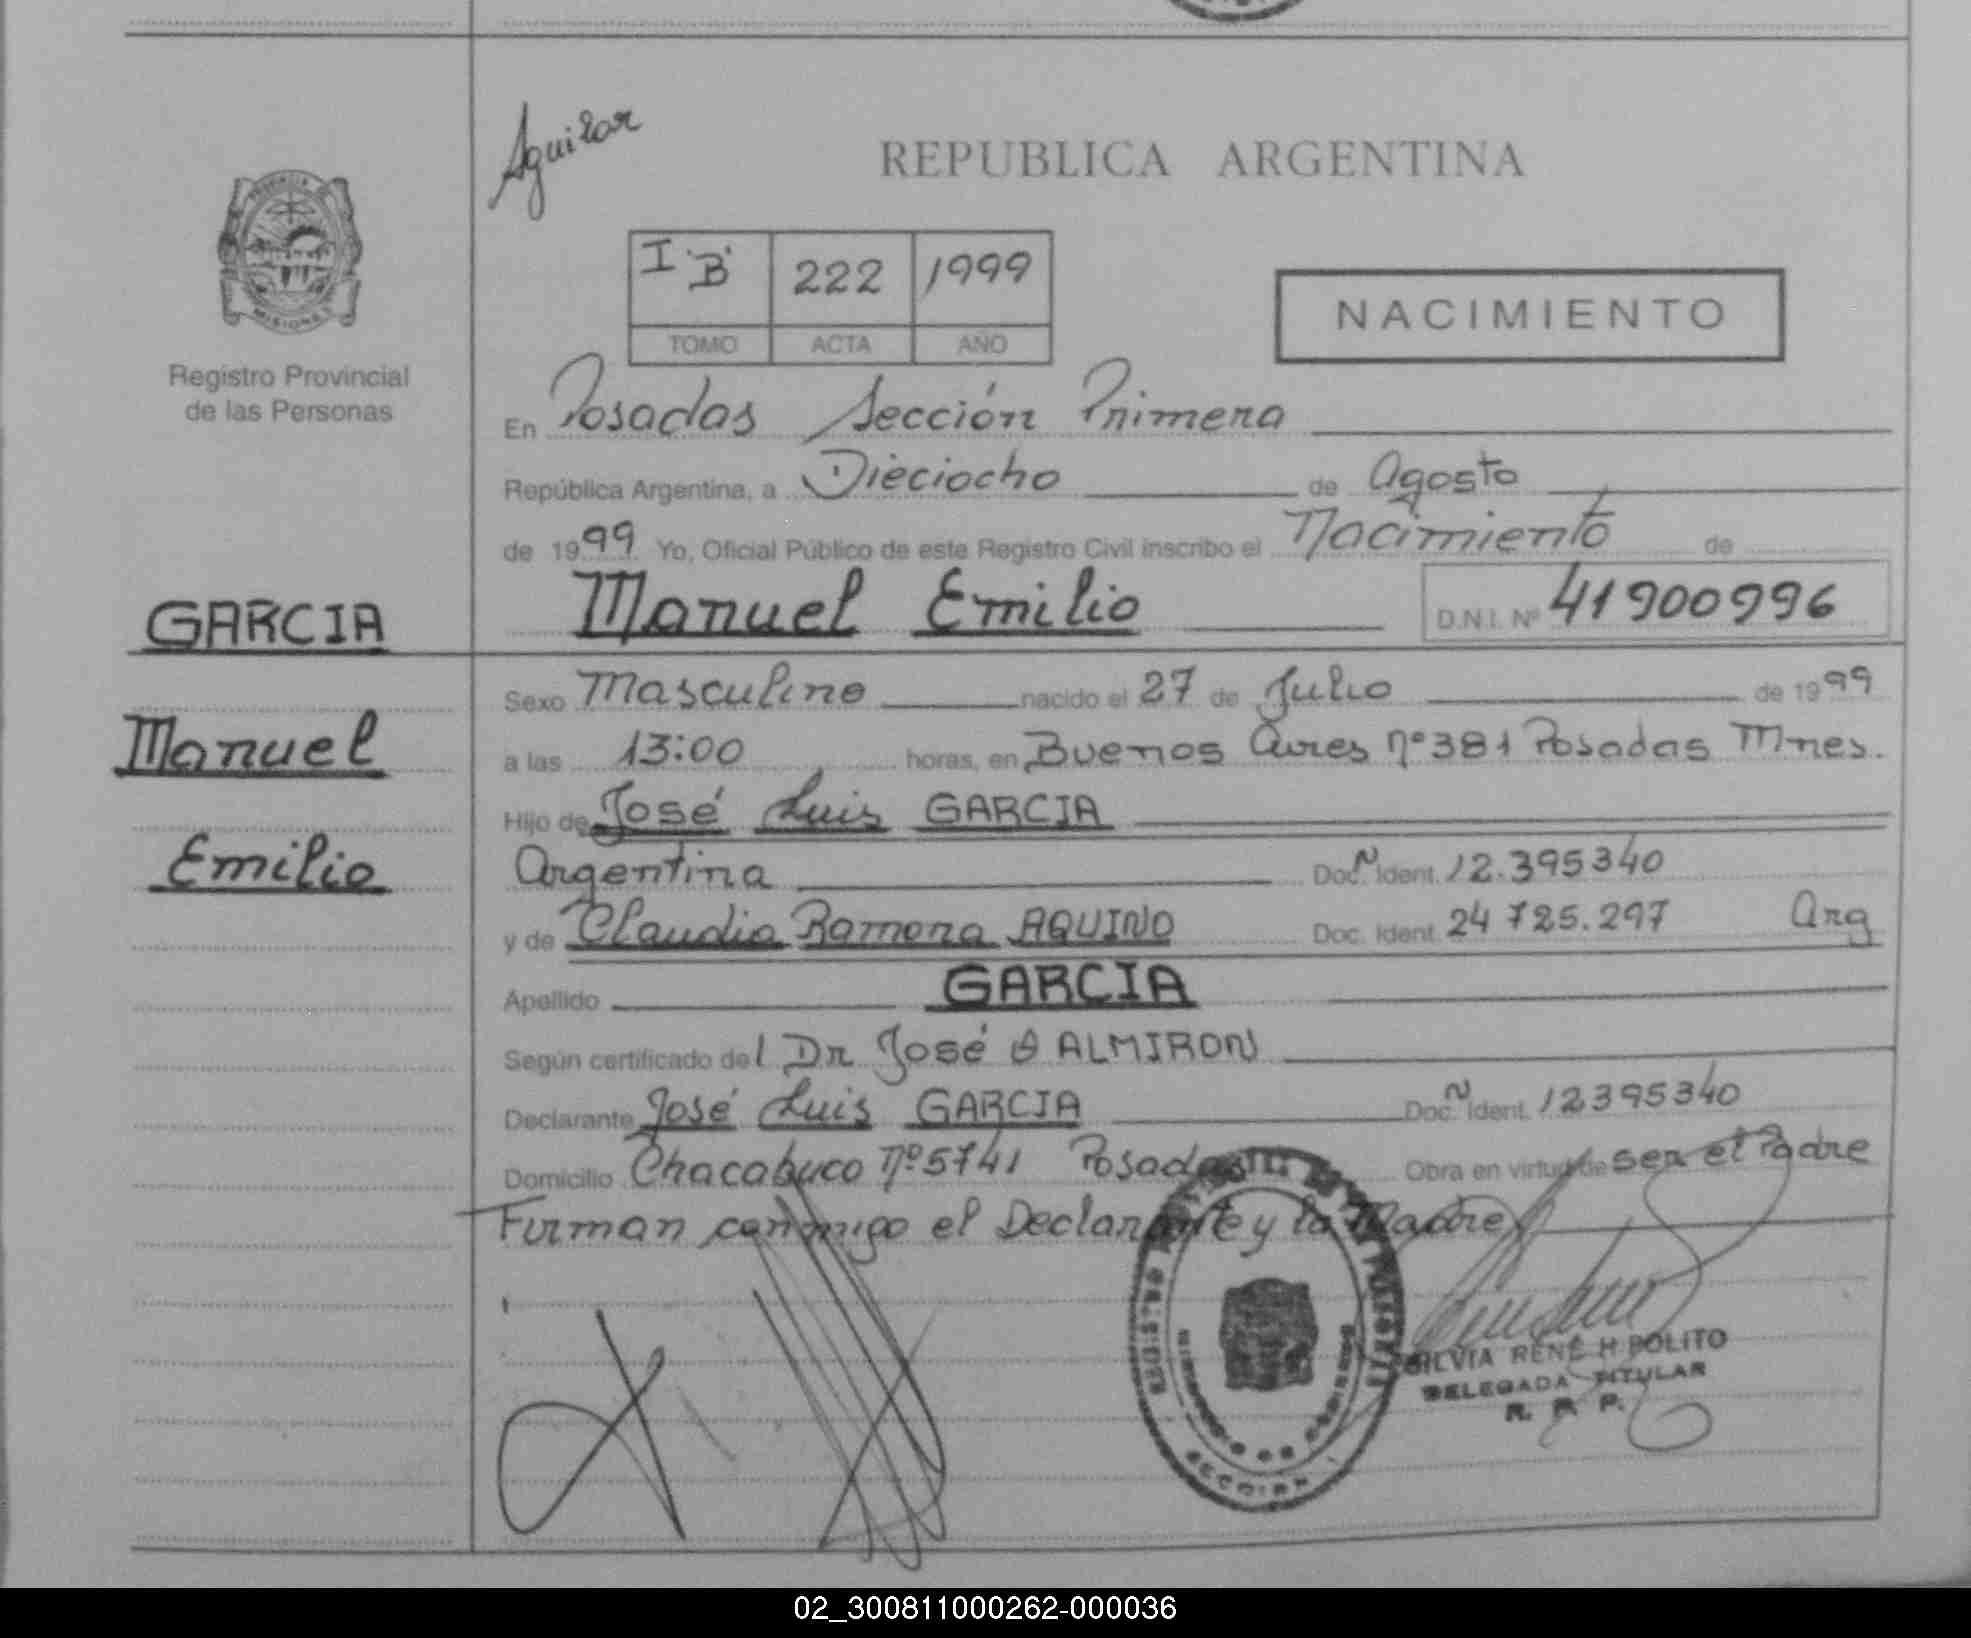 Aguilar
REPUBLICA ARGENTINA
PROVINCIA DE
MISIONES
I "B" 222 1999
TOMO ACTA AÑO
NACIMIENTO
Registro Provincial
de las Personas
En Posadas Sección Primera
República Argentina, a Dieciocho de Agosto
de 1999 Yo, Oficial Público de este Registro Civil inscribo el Nacimiento de
GARCIA
Manuel Emilio D.N.I. Nº 41900996
Sexo Masculino nacido el 27 de Julio de 1999
Manuel
a las 13:00 horas, en Buenos Aires Nº 381 Posadas Mnes.
Hijo de José Luis GARCIA
Emilio
Argentina Doc. N Ident. 12.395340
y de Claudia Ramona AQUINO Doc. Ident. 24 725.297 Arg
Apellido GARCIA
Según certificado del Dr José O ALMIRON
Declarante José Luis GARCIA Doc. N Ident. 12395340
Domicilio Chacabuco Nº 5741 Posadas Obra en virtud de ser el Padre
Firman conmigo el Declarante y la Madre
SILVIA RENÉ H. POLITO
DELEGADA TITULAR
R. P. P.
SECCION
02_300811000262-000036